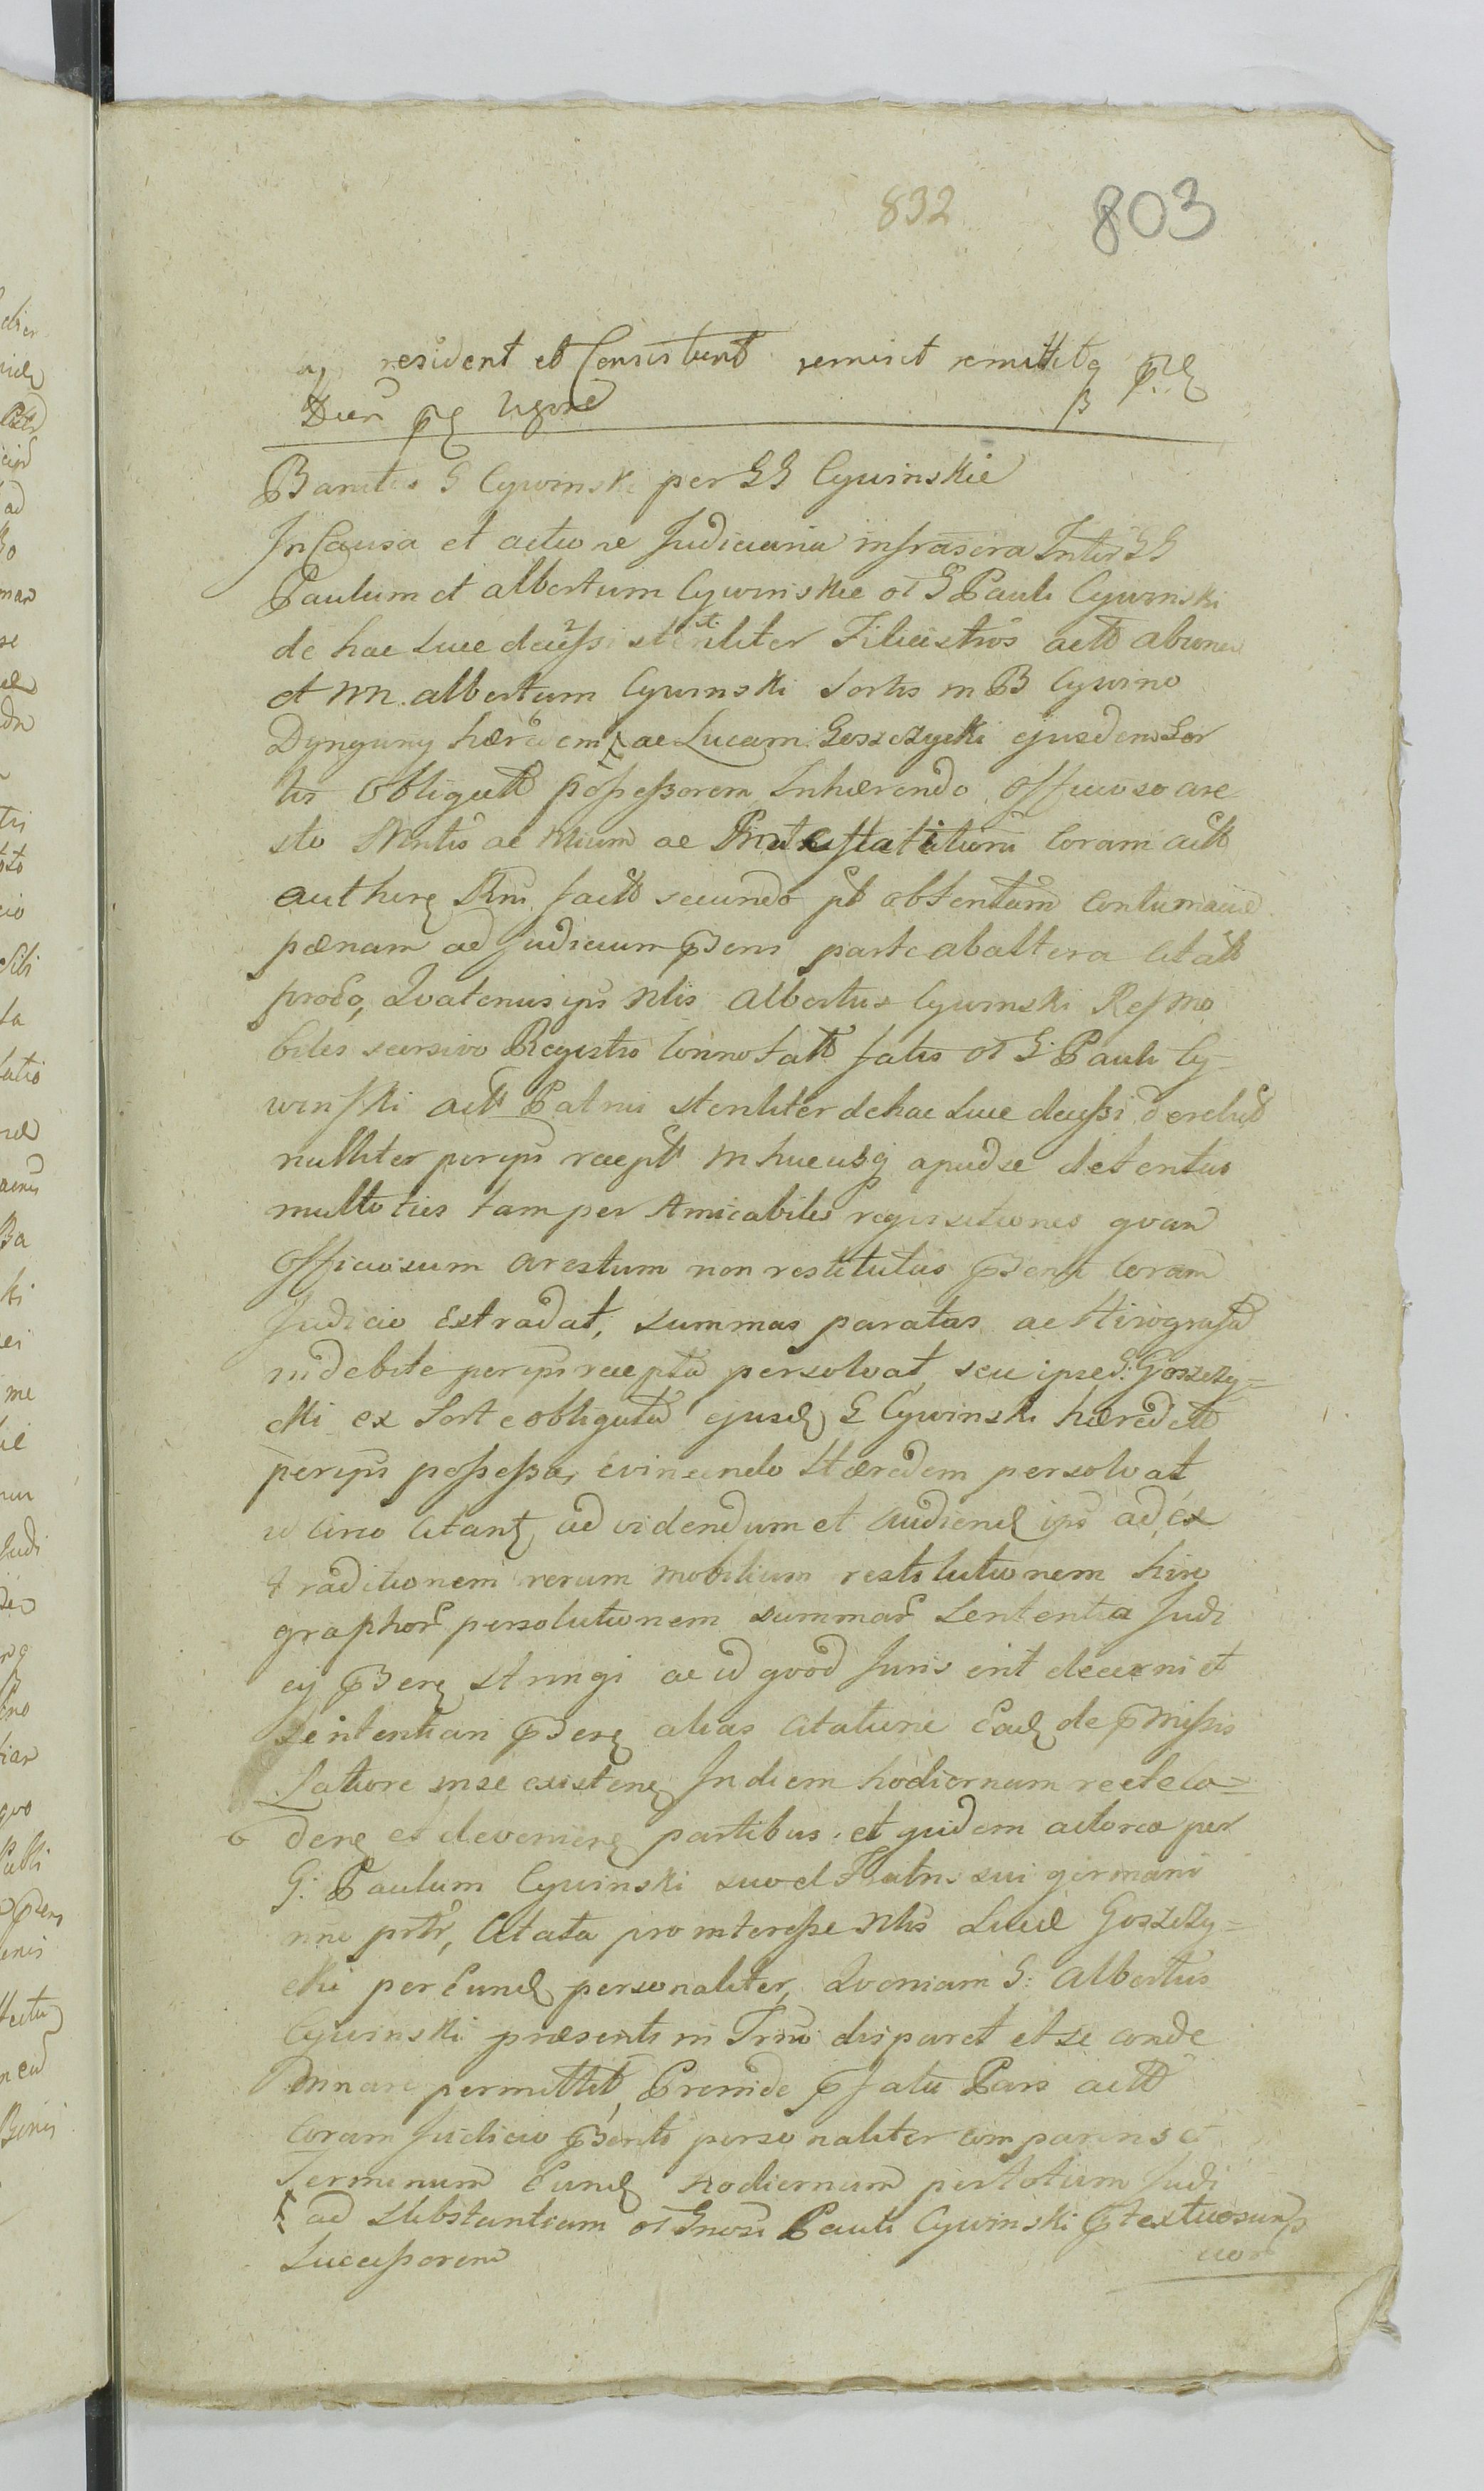 832 803
resident et Consistunt remisit remittitq
Decr vigore
Banitio G Cywinski per GG Cywinskie
In Causa et actione Judiciaria infrascra Inter GG
Paulum et albertum Cywinskie ol G Pauli Cywinski
de hac Luce decessi steriliter Filiastros actt abione
et NN. albertum Cywinski Sortis in B Cywino
Dynguny hæredem ac Lucam Goszczycki ejusdem Sor
tis Obligatt possessorem Inhærendo officioso are
sto Nrntis ac ac Protestationi Coram actt
authen Rni factt secundo pt obtentam Contumaciæ
pænam ad Judicium Psens parte ab altera Citatt
proco, Qvatenus ips Nlis Albertus Cywinski Res mo
biles seorsivo Registro Connotatt fatis ol G. Pauli Cy
winski actt Patrui steriliter de hac Luce decessi derelict
nulliter per ips receptt in hucusq apud se detentas
multoties tam per Amicabiles reqvisitiones qvam
Officiosum arestum non restitutas Psenti Coram
Judicio Extradat, summas paratas ac Hirografa
indebite per ips recepta persolvat seu ipse G. Goszczy=
cki ex Sorte obligata ejusd G Cywinski hæredett
per ips possessa, evincendo Hæredem persolvat
id circo Citant ad videndum et audiend ips ad ex
traditionem rerum mobilium restitutionem hiro
graphor persolutionem summar Sententia Judi
cij Psen stringi ac id qvod Juris erit decerni et
Sententiam Psen alias Citatione Ead de pmissis
Latiore in se existen In diem hodiernum recte ca=
den et devenien partibus et quidem actorea per
G: Paulum Cywinski suo et Fratris sui germani
nne prtr, Citata pro interesse Nlis Lucæ Goszczy=
cki per Eund personaliter, Qvoniam G: Albertus
Cywinski præsenti in Trno disparet et se conde
mnari permittit, Proinde pfata Pars actt
Coram Judicio Psenti personaliter comparens et
Terminum Eund hodiernum pertotum Judi
ad Substantiam ol Gnosi Pauli Cywinski Ptextuosum
Successorem